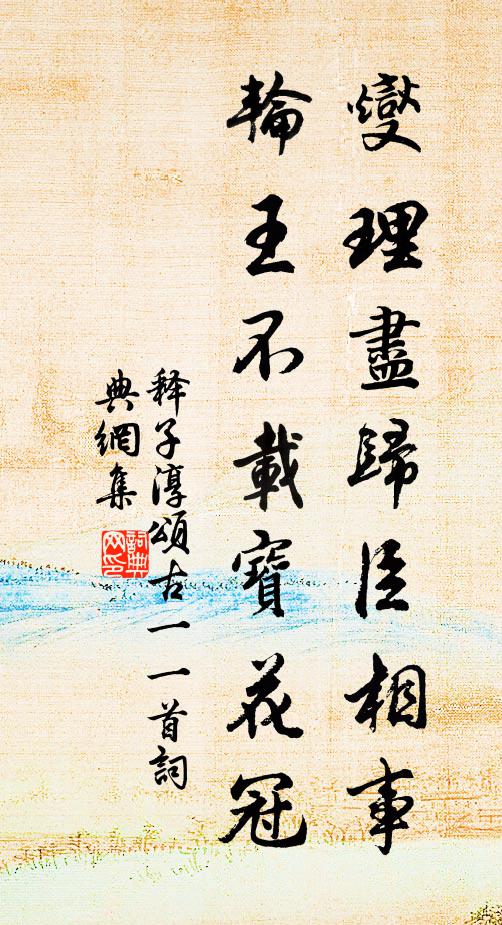 燮理盡歸臣相事
輪王不載寶花冠
释子淳頌古一一首詞
典網集
詞典
网印